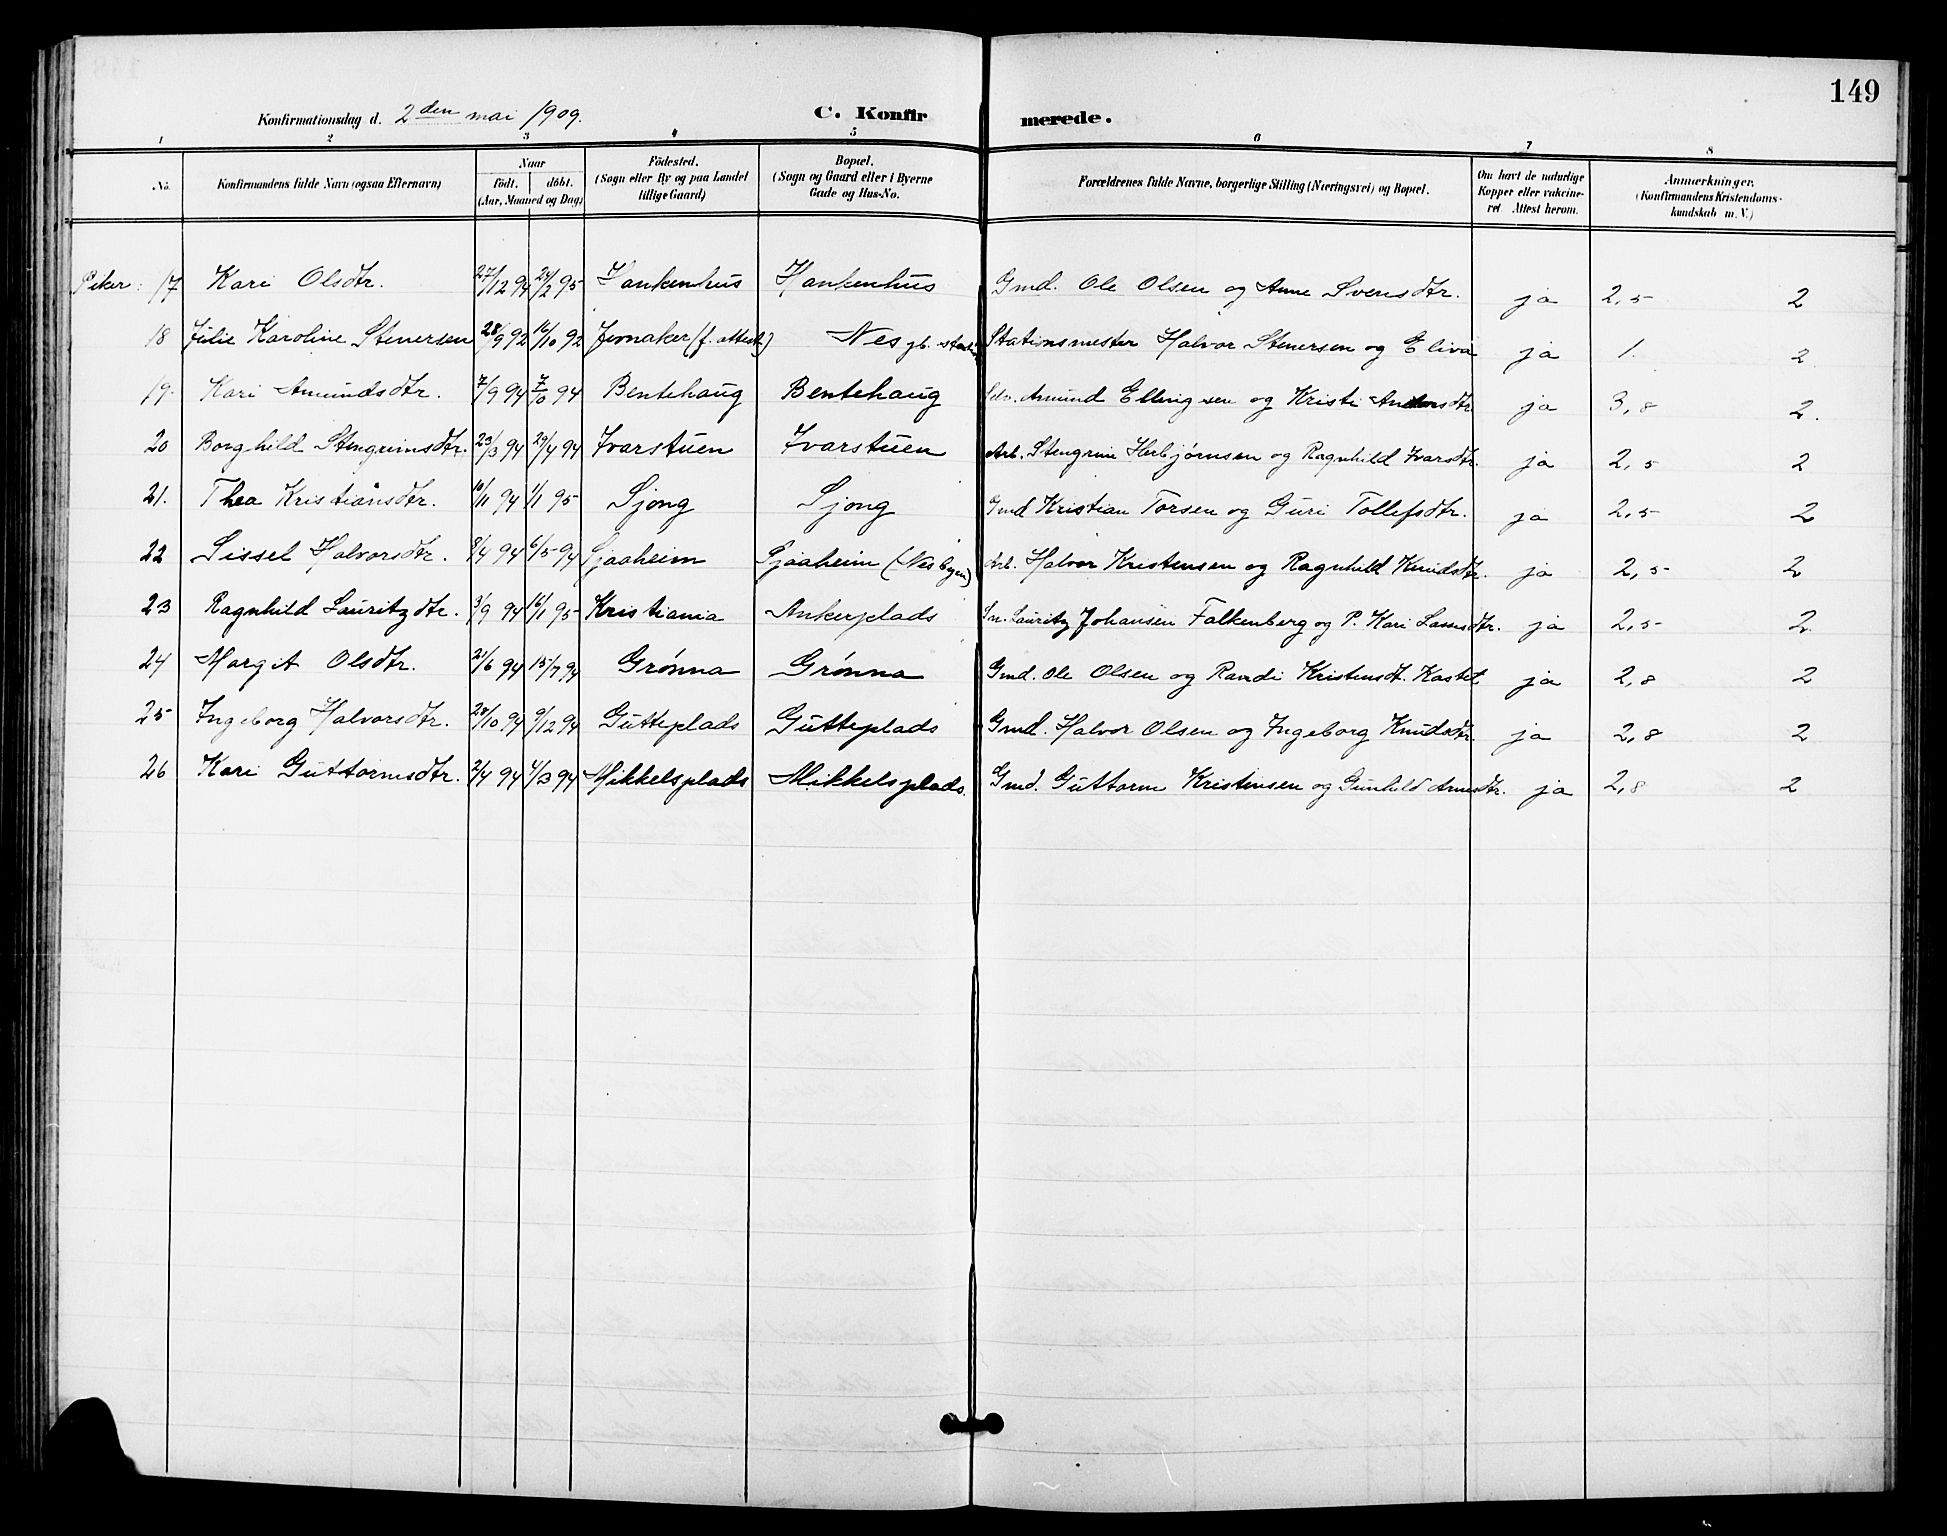 149
Konfirmationsdag d. 2den mai 1909. C. Konfirmerede.
1 2 3 4 5 6 7 8
No. Konfirmandens fulde Navn (ogsaa Efternavn) Naar født. døbt. (Aar, Maaned og Dag) Födested. (Sogn eller By og paa Landet tillige Gaard) Bopæl. (Sogn og Gaard eller i Byerne Gade og Hus-No. Forældrenes fulde Navne, borgerlige Stilling (Næringsvei) og Bopæl. Om havt de naturlige Kopper eller vakcineret. Attest herom. Anmærkninger. (Konfirmandens Kristendomskundskab m. V.)
Piker: 17 Kari Olsdtr. 27/12 94 24/2 95 Hankenhus Hankenhus Gmd. Ole Olsen og Anne Svensdtr. ja 2,5 2
18 Julie Karoline Stenersen 28/9 92 16/10 92 Jevnaker (f. attest) Nes jb. Stationsmester Halvor Stenersen og Eliva ja 1. 2
19. Kari Amundsdtr. 7/9 94 7/10 94 Bentehaug Bentehaug Selv. Amund Ellingsen og Kristi Andersdtr. ja 3,8 2.
20 Borghild Stengrimsdtr. 23/3 94 29/4 94 Ivarstuen Ivarstuen Arb. Stengrim Herbjørnsen og Ragnhild Ivarsdtr. ja 2,5 2
21. Thea Kristiansdtr. 10/11 94 1/1 95 Sjong Sjong Gmd Kristian Torsen og Guri Tollefsdtr. ja 2,5 2
22 Sissel Halvorsdtr. 8/4 94 6/5 94 Sjaaheim Sjaaheim (Nesbyen) Arb. Halvor Kristensen og Ragnhild Knudsdtr. ja 2,5 2
23 Ragnhild Lauritzdtr. 3/9 94 16/1 95 Kristiania Ankerplads Lauritz Johansen Falkenberg og P. Kari Lassesdtr. ja 2,5 2
24 Margit Olsdtr. 21/6 94 15/7 94 Grønna Grønna Gmd. Ole Olsen og Randi Kristensdt. Kastet ja 2,8 2
25 Ingeborg Halvorsdtr. 28/10 94 9/12 94 Gutteplads Gutteplads Gmd. Halvor Olsen og Ingeborg Knudsdtr. ja 2,8 2
26 Kari Guttormsdtr. 2/4 94 4/3 94 Mikkelsplads Mikkelsplads. Gmd. Guttorm Kristensen og Gunhild Arnesdtr. ja 2,8 2